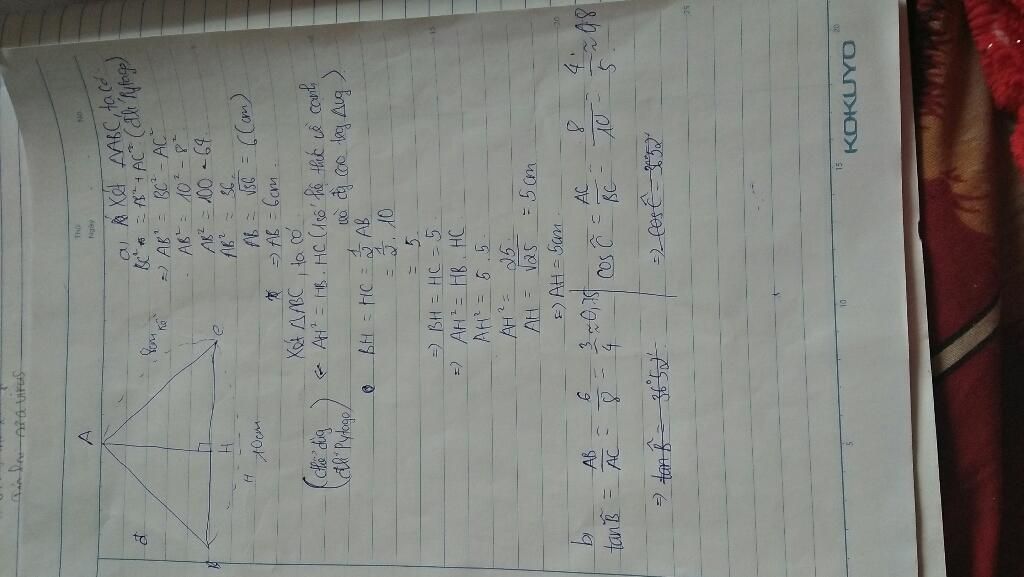 Thứ
Ngày
No.
A
B
C
H
H
8cm
10cm
a. Xét ΔABC, ta có
BC² = AB² + AC² (đlí Pytago)
⇒ AB² = BC² - AC²
AB² = 10² - 8²
AB² = 100 - 64
AB² = 36
AB = √36 = 6 (cm)
⇒ AB = 6cm
Xét ΔABC, ta có
AH² = HB . HC (1 số hệ thức về cạnh
và đg cao trog Δvg)
(thể dùg
đlí Pytago)
BH = HC = 1/2 AB
= 1/2 . 10
= 5
⇒ BH = HC = 5
⇒ AH² = HB . HC
AH² = 5 . 5
AH² = 25
AH = √25 = 5cm
⇒ AH = 5cm
b
tan B̂ = AB/AC = 6/8 = 3/4 ≈ 0,75
cos Ĉ = AC/BC = 8/10 = 4/5 ≈ 0,8
⇒ tan B̂ = 36°52'
⇒ cos Ĉ = 36°52'
5
10
15
20
KOKUYO